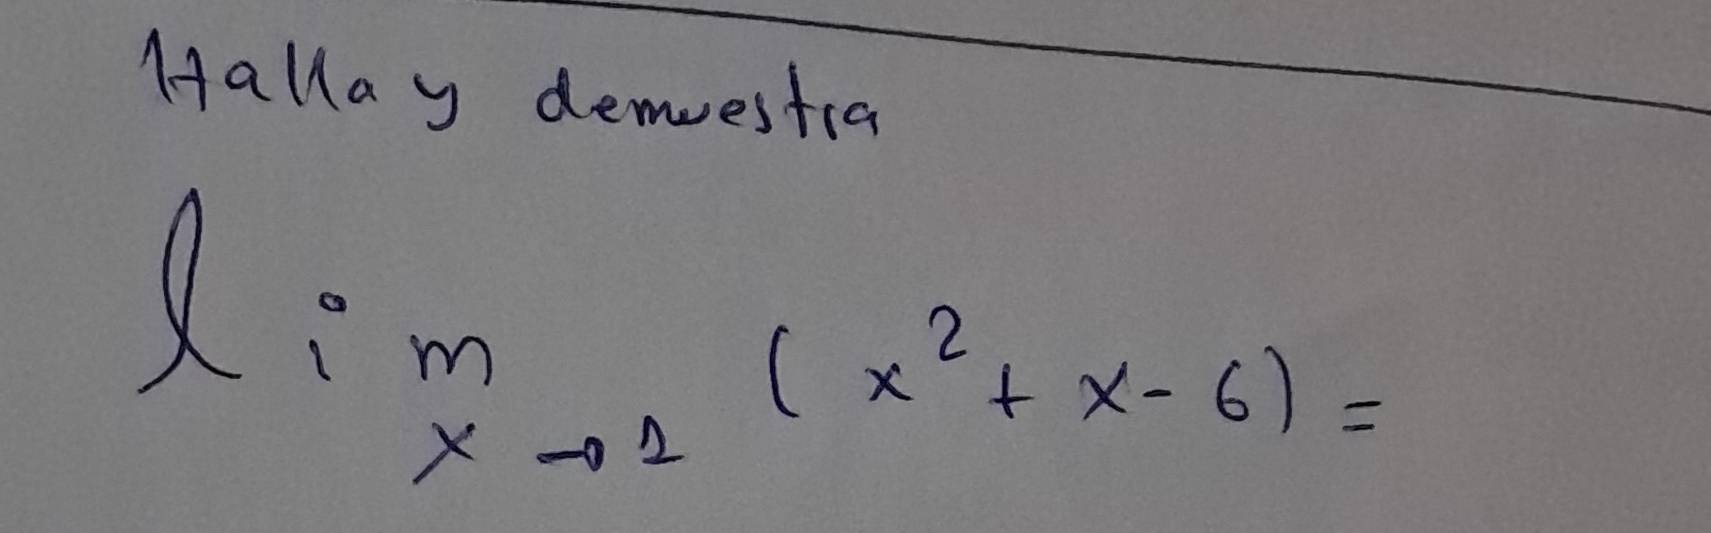 Halla y demuestra
lim (x² + x - 6) =
x → 2